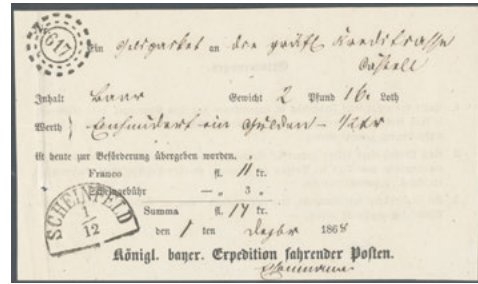 617
Ein Geldpacket an die gräfl. Kreditkasse
Castell
Inhalt Baar Gewicht 2 Pfund 16 Loth
Werth } Einhundert ein Gulden
ist heute zur Beförderung übergeben worden.
Franco fl. 11 kr.
gebühr — „ 3 „
Summa fl. 14 kr.
den 1 ten Dezbr 1868
SCHEINFELD
1
12
Königl. bayer. Expedition fahrender Posten.